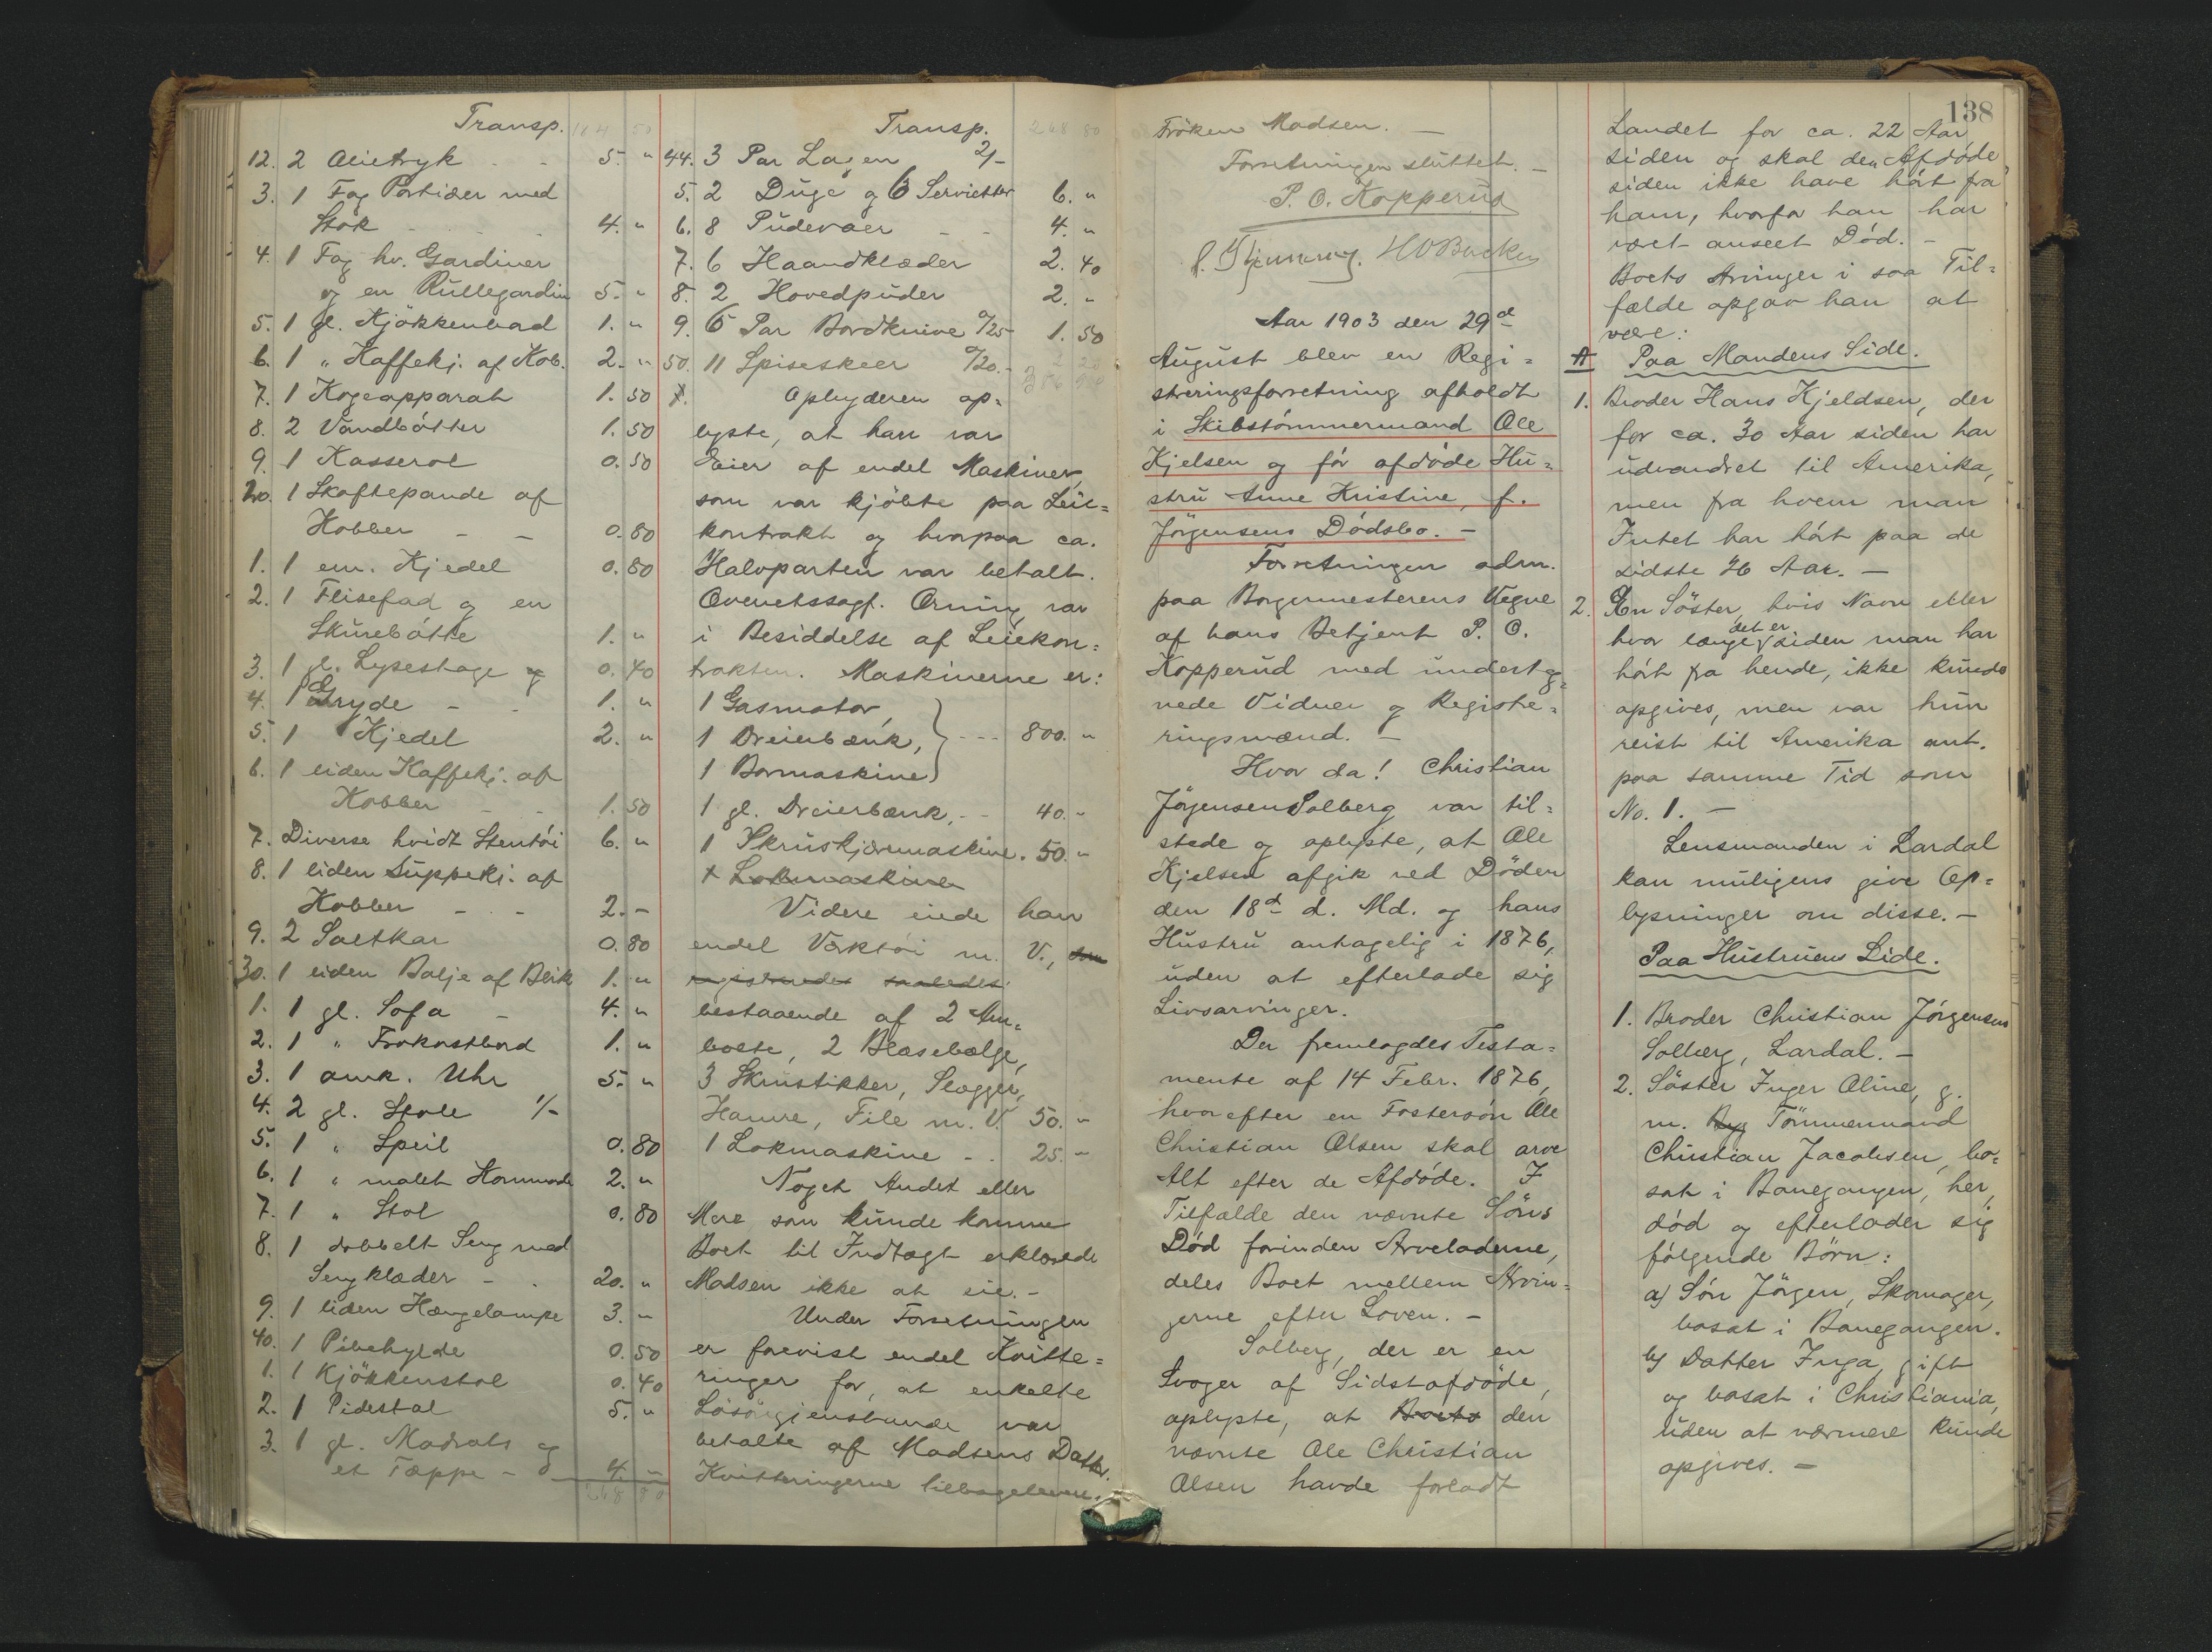 Transp. 184 50
12. 2 Olietryk - - 5. "
3. 1 Fag Portider med
Stok - - - 4. "
4. 1 Fag hv. Gardiner
og en Rullegardin 5. "
5. 1 gl. Kjøkkenbord 1. "
6. 1 " Kaffekj. af Kob. 2. "
7. 1 Kogeapparat 1. 50
8. 2 Vandbøtter 1. 50
9. 1 Kasserol 0. 50
20. 1 Skaftepande af
Kobber - - 0. 80
1. 1 em. Kjedel 0. 80
2. 1 Flisefad og en
Skurebøtte 1. "
3. 1 gl. Lysestage og 0. 40
4. 1 Gryde - - 1. "
5. 1 Kjedel 2. "
6. 1 liden Kaffekj. af
Kobber - - 1. 50
7. Diverse hvidt Stentøi 6. "
8. 1 liden Suppekj. af
Kobber - - 2. -
9. 2 Saltkar 0. 80
30. 1 liden Balje af Blik 1. "
1. 1 gl. Sofa - 4. "
2. 1 " Frokostbord 1. "
3. 1 amk. Uhr 5. "
4. 2 gl. Stole 1/-
5. 1 " Speil 0. 80
6. 1 " malet Kommode 2. "
7. 1 " Stol 0. 80
8. 1 dobbelt Seng med
Sengklæder - - 20. "
9. 1 liden Hængelampe 3. "
40. 1 Pibehylde 0. 50
1. 1 Kjøkkenstol 0. 40
2. 1 Pidestal 5. "
3. 1 gl. Madrats og
et Tæppe - 4. "
268 80
Transp. 268 80
44. 3 Par Lagen 2/-
5. 2 Duge og 6 Servietter 6. "
6. 8 Pudevaer - - 4. "
7. 6 Haandklæder 2. 40
8. 2 Hovedpuder 2. "
9. 6 Par Bordknive a/25 1. 50
50. 11 Spiseskeer a/20. - 2 20
Opbyderen op-
lyste, at han var
Eier af endel Maskiner,
som var kjøbte paa Leie-
kontrakt og hvorpaa ca.
Halvparten var betalt.
Overretssagf. Orning var
i Besiddelse af Leiekon-
trakten. Maskinerne er:
1 Gasmotor,
1 Dreierbænk, - - - 800. "
1 Bormaskine
1 gl. Dreierbænk, - - 40. "
1 Skruskjæremaskine. 50. "
+ Lokmaskine
Videre eiede han
endel Værktøi m. V., som
registreredes saaledes:
bestaaende af 2 Am-
bolte, 2 Blæsebælge,
3 Skrustikker, Slægger,
Hamre, File m. V. 50. "
1 Lokmaskine - . 25. "
Noget Andet eller
Mere som kunde komme
Boet til Indtægt erklærede
Madsen ikke at eie. -
Under Forretningen
er forevist endel Kvitte-
ringer for, at enkelte
Løsøregjenstande var
betalte af Madsens Datter.
Kvitteringerne tilbageleveres.
Frøken Madsen. -
Forretningen sluttet. -
P. O. Kopperud
Aar 1903 den 29de
August blev en Regi-
streringsforretning afholdt
i Skibstømmermand Ole
Kjelsen og før afdøde Hu-
stru Anne Kristine, f.
Jørgensens Dødsbo. -
Forretningen adm.
paa Borgermesterens Vegne
af hans Betjent P. O.
Kopperud med underteg-
nede Vidner og Registe-
ringsmænd. -
Hvor da! Christian
Jørgensen Solberg var til-
stede og oplyste, at Ole
Kjelsen afgik ved Døden
den 18de d. Md. og hans
Hustru antagelig i 1876,
uden at efterlade sig
Livsarvinger.
Der fremlagdes Testa-
mente af 14 Febr. 1876,
hvorefter en Fostersøn Ole
Christian Olsen skal arve
Alt efter de Afdøde. I
Tilfælde den nævnte Søns
Død forinden Arveladerne,
deles Boet mellem Arvin-
gerne efter Loven. -
Solberg, der er en
Svoger af Sidstafdøde,
oplyste, at Boets den
nævnte Ole Christian
Olsen havde forladt
138
Landet for ca. 22 Aar
siden og skal de "Afdøde"
siden ikke have hørt fra
ham, hvorfor han har
været anseet Død. -
Boets Arvinger i saa Til-
fælde opgav han at
være:
A Paa Mandens Side.
1. Broder Hans Kjeldsen, der
for ca. 30 Aar siden har
udvandret til Amerika,
men fra hvem man
Intet har hørt paa de
sidste 26 Aar. -
2. En Søster, hvis Navn eller
hvor længe det er siden man har
hørt fra hende, ikke kunde
opgives, men var hun
reist til Amerika ant.
paa samme Tid som
No. 1. -
Lensmanden i Lardal
kan muligens give Op-
lysninger om disse. -
Paa Hustruens Side.
1. Broder Christian Jørgensens
Solberg, Lardal. -
2. Søster Inger Oline, g.
m. Byg Tømmermand
Christian Jacobsen, bo-
sat i Banegangen, her,
død og efterlader sig
følgende Børn:
a) Søn Jørgen, Skomager,
bosat i Banegangen.
b) Datter Inga, gift
og bosat i Christiania,
uden at nærmere kunde
opgives. -